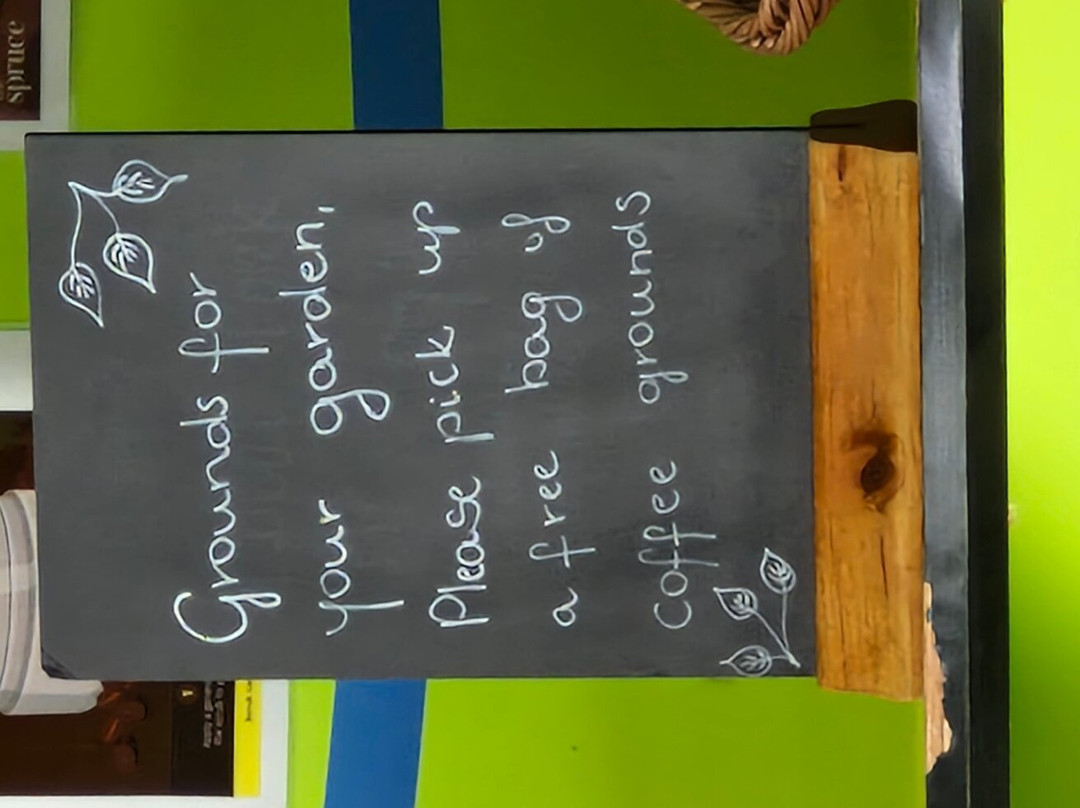 Grounds for
your garden,
Please pick up
a free bag of
coffee grounds
spruce